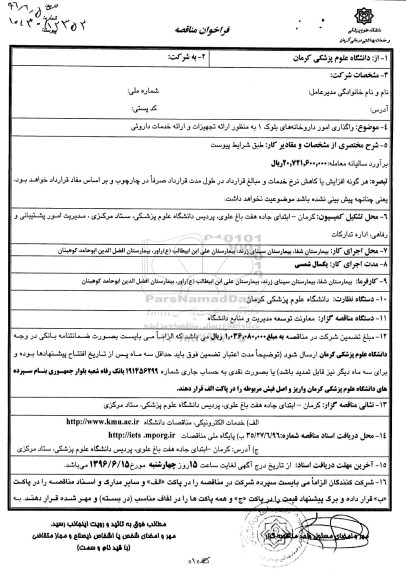 دانشگاه علوم پزشکی
و خدمات بهداشتی درمانی کرمان
فراخوان مناقصه
۱- از: دانشگاه علوم پزشکی کرمان ۲- به شرکت:
۳- مشخصات شرکت:
نام و نام خانوادگی مدیرعامل: شماره ملی:
آدرس: کد پستی:
۴- موضوع: واگذاری امور داروخانه‌های بلوک ۱ به منظور ارائه تجهیزات و ارائه خدمات داروئی
۵- شرح مختصری از مشخصات و مقادیر کار: طبق شرایط پیوست
برآورد سالیانه معامله: ۲۰,۷۲۱,۶۰۰,۰۰۰ ریال
تبصره: هر گونه افزایش یا کاهش نرخ خدمات و مبالغ قرارداد در طول مدت قرارداد صرفاً در چارچوب و بر اساس مفاد قرارداد خواهد بود،
یعنی چنانچه پیش بینی نشده باشد موضوعیت نخواهد داشت.
۶- محل تشکیل کمیسیون: کرمان – ابتدای جاده هفت باغ علوی، پردیس دانشگاه علوم پزشکی، ستاد مرکزی ، مدیریت امور پشتیبانی و
رفاهی، اداره تدارکات
۷- محل اجرای کار: بیمارستان شفا، بیمارستان سینای زرند، بیمارستان علی ابن ابیطالب (ع) راور، بیمارستان افضل الدین ابوحامد کوهبنان
۸- مدت اجرای کار: یکسال شمسی
۹- کارفرما: بیمارستان شفا، بیمارستان سینای زرند، بیمارستان علی ابن ابیطالب (ع) راور، بیمارستان افضل الدین ابوحامد کوهبنان
۱۰- دستگاه نظارت: دانشگاه علوم پزشکی کرمان
۱۱- دستگاه مناقصه گزار: معاونت توسعه مدیریت و منابع دانشگاه
۱۲- مبلغ تضمین شرکت در مناقصه به مبلغ ۱,۰۳۶,۰۸۰,۰۰۰ ریال می باشد که الزاماً می بایست بصورت ضمانتنامه بانکی در وجه
دانشگاه علوم پزشکی کرمان ارسال شود (توضیحاً مدت اعتبار تضمین فوق باید حداقل سه ماه پس از تاریخ افتتاح پیشنهادها بوده و
برای سه ماه دیگر نیز قابل تمدید باشد) یا بصورت نقدی به حساب جاری شماره ۱۹۱۳۵۶۲۹۹ بانک رفاه شعبه بلوار جمهوری بنام سپرده
های دانشگاه علوم پزشکی کرمان واریز و اصل فیش مربوطه را در پاکت الف قرار دهند.
۱۳- نشانی مناقصه گزار: کرمان – ابتدای جاده هفت باغ علوی، پردیس دانشگاه علوم پزشکی، ستاد مرکزی
الف) خدمات الکترونیکی، مناقصات دانشگاه http://www.kmu.ac.ir
۱۴- محل دریافت اسناد مناقصه شماره: ۳۵/۲۷/۶/۹۶ ب) پایگاه ملی مناقصات http://iets.mporg.ir
ج) آدرس: کرمان – ابتدای جاده هفت باغ علوی، پردیس دانشگاه علوم پزشکی، ستاد مرکزی
۱۵- آخرین مهلت دریافت اسناد: از تاریخ درج آگهی لغایت ساعت ۱۵ روز چهارشنبه مورخ ۱۳۹۶/۶/۱۵ می‌باشد.
۱۶- شرکت کنندگان الزاماً می بایست سپرده شرکت در مناقصه را در پاکت «الف» و سایر مدارک و اسناد مناقصه را در پاکت
«ب» قرار داده و برگ پیشنهاد قیمت را در پاکت «ج» و همه پاکت ها را در لفاف مناسب (در بسته) و مهر شده قرار دهند. به
مطالب فوق به تائید و رویت اینجانب رسید.
مهر و امضای شخص یا اشخاص ذیصلاح و مجاز متقاضی
(با قید نام و سمت)
مهر و امضای مسئول